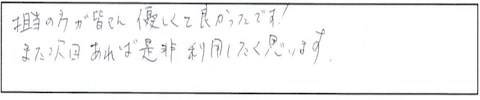 担当の方が皆さん優しくて良かったです!
また次回あれば是非利用したく思います.